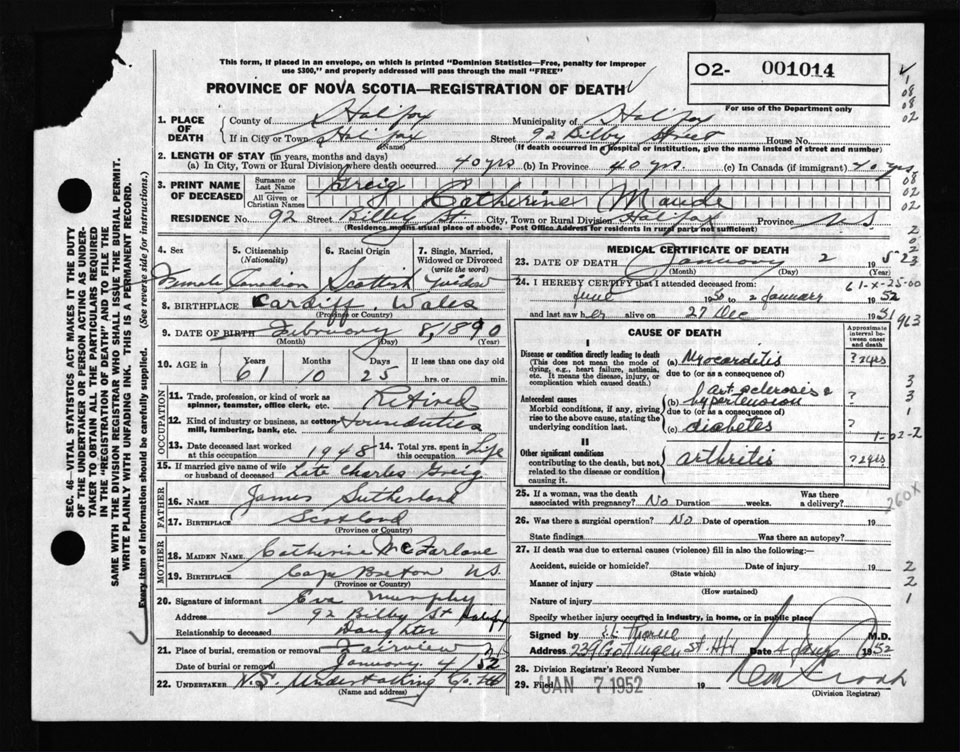 This form, if placed in an envelope, on which is printed "Dominion Statistics—Free, penalty for improper
use $300," and properly addressed will pass through the mail "FREE"
PROVINCE OF NOVA SCOTIA—REGISTRATION OF DEATH
O2- 001014
For use of the Department only
SEC. 46-VITAL STATISTICS ACT MAKES IT THE DUTY
OF THE UNDERTAKER OR PERSON ACTING AS UNDER-
TAKER TO OBTAIN ALL THE PARTICULARS REQUIRED
IN THE "REGISTRATION OF DEATH" AND TO FILE THE
SAME WITH THE DIVISION REGISTRAR WHO SHALL ISSUE THE BURIAL PERMIT.
WRITE PLAINLY WITH UNFADING INK. THIS IS A PERMANENT RECORD.
Every item of information should be carefully supplied. (See reverse side for instructions.)
1. PLACE OF DEATH
County of Halifax Municipality of Halifax
If in City or Town Halifax Street 92 Bilby Street House No.
(Name) (If death occurred in hospital or institution, give name instead of street and number)
2. LENGTH OF STAY (in years, months and days)
(a) In City, Town or Rural Division where death occurred 40 yrs (b) In Province 40 yrs. (c) In Canada (if immigrant) 40 yrs
3. PRINT NAME OF DECEASED
Surname or Last Name Greig
All Given or Christian Names Catherine Maude
RESIDENCE No. 92 Street Bilby St. City, Town or Rural Division Halifax Province N.S.
(Residence means usual place of abode. Post Office Address for residents in rural parts not sufficient)
4. Sex 5. Citizenship (Nationality) 6. Racial Origin 7. Single, Married, Widowed or Divorced (write the word)
Female Canadian Scottish Widow
8. BIRTHPLACE Cardiff, Wales
(Province or Country)
9. DATE OF BIRTH February 8, 1890
(Month) (Day) (Year)
10. AGE in Years Months Days If less than one day old
61 10 25 hrs. or min.
OCCUPATION
11. Trade, profession, or kind of work as spinner, teamster, office clerk, etc. Retired
12. Kind of industry or business, as cotton mill, lumbering, bank, etc.
13. Date deceased last worked at this occupation 1948 14. Total yrs. spent in this occupation Life
15. If married give name of wife or husband of deceased Late Charles Greig
FATHER
16. NAME James Sutherland
17. BIRTHPLACE Scotland
(Province or Country)
MOTHER
18. MAIDEN NAME Catherine McFarlane
19. BIRTHPLACE Cape Breton N.S.
(Province or Country)
20. Signature of informant Eva Murphy
Address 92 Bilby St Halifax
Relationship to deceased Daughter
21. Place of burial, cremation or removal Fairview
Date of burial or removal January 4/52
22. UNDERTAKER N.S. Undertaking Co. Ltd
(Name and address)
MEDICAL CERTIFICATE OF DEATH
23. DATE OF DEATH January 2 1952
(Month) (Day)
24. I HEREBY CERTIFY that I attended deceased from:
June 1950 to 2 January 1952
and last saw her alive on 27 Dec 1951
CAUSE OF DEATH
Approximate interval between onset and death
I
Disease or condition directly leading to death
(This does not mean the mode of dying, e.g., heart failure, asthenia, etc. It means the disease, injury, or complication which caused death.)
(a) Myocarditis ? 2 yrs
due to (or as a consequence of)
Antecedent causes
Morbid conditions, if any, giving rise to the above cause, stating the underlying condition last.
(b) art sclerosis c hypertension ?
due to (or as a consequence of)
(c) diabetes ?
II
Other significant conditions
contributing to the death, but not related to the disease or condition causing it.
arthritis ? 2 yrs
25. If a woman, was the death associated with pregnancy? No Duration weeks. Was there a delivery?
26. Was there a surgical operation? No Date of operation 19
State findings Was there an autopsy?
27. If death was due to external causes (violence) fill in also the following:—
Accident, suicide or homicide? Date of injury 19
(State which)
Manner of injury
(How sustained)
Nature of injury
Specify whether injury occurred in industry, in home, or in public place
Signed by M.D.
Address 239 Gottingen St. Hfx Date 4 Jany 1952
28. Division Registrar's Record Number
29. Filed JAN 7 1952 19
(Division Registrar)